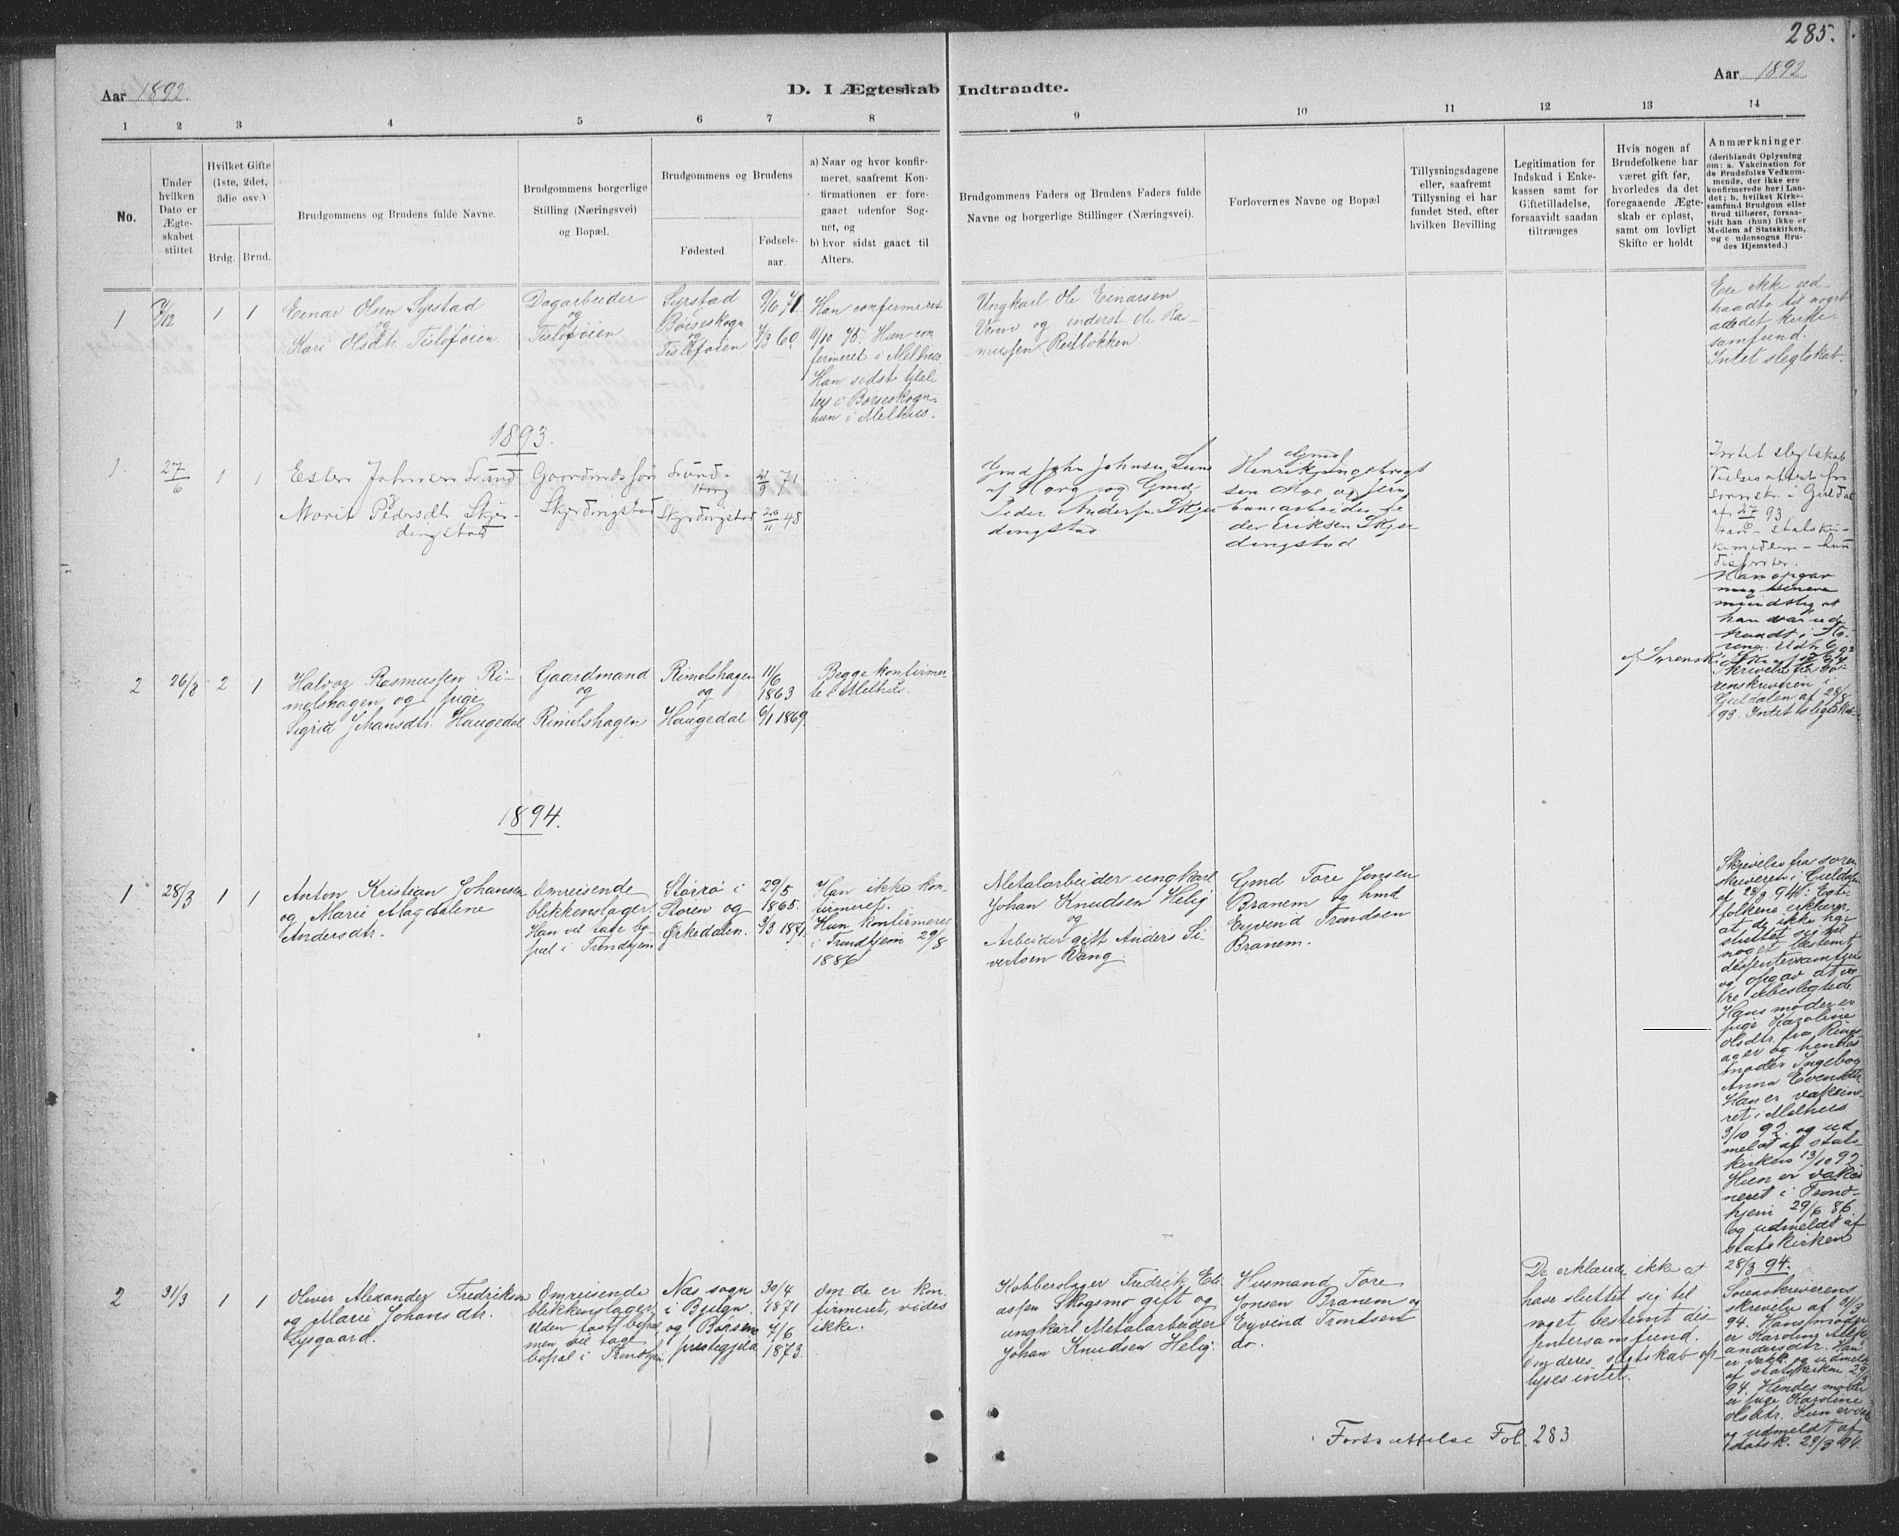 285.
Aar 1892.
D. I Ægteskab Indtraadte.
Aar 1892
1 2 3 4 5 6 7 8 9 10 11 12 13 14
No.
Under
hvilken
Dato er
Ægte-
skabet
stiftet
Hvilket Gifte
(1ste, 2det,
3die osv.)
Brdg. Brud.
Brudgommens og Brudens fulde Navne.
Brudgommens borgerlige
Stilling (Næringsvei)
og Bopæl.
Brudgommens og Brudens
Fødested
Fødsels-
aar.
a) Naar og hvor konfir-
meret, saafremt Kon-
firmationen er fore-
gaaet udenfor Sog-
net, og
b) hvor sidst gaaet til
Alters.
Brudgommens Faders og Brudens Faders fulde
Navne og borgerlige Stillinger (Næringsvei).
Forlovernes Navne og Bopæl
Tillysningsdagene
eller, saafremt
Tillysning ei har
fundet Sted, efter
hvilken Bevilling
Legitimation for
Indskud i Enke-
kassen samt for
Giftetilladelse,
forsaavidt saadan
tiltrænges
Hvis nogen af
Brudefolkene har
været gift før,
hvorledes da det
foregaaende Ægte-
skab er opløst,
samt om lovligt
Skifte er holdt
Anmærkninger
(deriblandt Oplysning
om: a. Vakcination for
de Brudefolks Vedkom-
mende, der ikke ere
konfirmerede her i Lan-
det; b, hvilket Kirke-
samfund Brudgom eller
Brud tilhører, forsaa-
vidt han (hun) ikke er
Medlem af Statskirken,
og c udensogns Bru-
des Hjemsted.)
1
1 1
Einar Olsen Syrstad
og
Kari Olsdtr. Tisløføien.
Dagarbeider
og
Tisløføien
Syrstad
Børseskogn
og
Tisløføien
9/6 71
7/3 60
Han confirmeret
11/10 75. Hun con
fermeret i Melhus.
Han sidst tilal
ters i Børseskogn
hun i Melhus.
Ungkarl Ole Einarsen
Vren og inderst Ole Ra-
mussen Reitløkken
Ere ikke ud-
traadte til noget
andet kirke-
samfund.
Intet slegtskab.
1893.
1. 27/6 1 1
Esten Johnsen Lund
og
Marit Pedersdtr Skjer-
dingstad
Gaardmandssøn
Skjerdingstad
Lund-
Horg
Skjerdingstad
21/9 71
20/11 48
Gmd John Johnsen Lund
af Horg og Gmd
Peder Andersen Skjer
dingstad
Gmd
Henrik Ingebrigt
sen Øie og jern
banearbeider Pe
der Eriksen Skjer
dingstad
Intet slegtskab
Vielsesattest fra
sorenskr. i Guldal
af 27/6 93
han - statskir-
kemedlem - hun
dissenter.
Han opgav
mig senere
mundtlig at
han var ud
traadt i Stø-
ren.
2 26/8 2 1
Halvor Rasmussen Ri-
melshagen og pige
Sigrid Johansdtr. Haugedal
Gaardmand
og
Rimelshagen
Rimelshagen
og
Haugedal
11/6
1863
6/1 1869.
Begge konfirmer
te i Melhus.
Skrivelse fra so-
renskriveren i
Guldalen af 28/8
93. Intet slegtskab
1894.
1 28/3 1 1
Anton Kristian Johansen
og Marie Magdalene
Andersdtr.
Omreisende
blikkenslager
Han vil tage bo-
pæl i Trondhjem
Størrø i
Støren og
Ørkedalen.
29/5
1865.
3/3 1871
Han ikke kon
firmeret.
Hun konfirmeret
i Trondhjem 29/8
1886
Metalarbeider ungkarl
Johan Knudsen Helig
og
Arbeider gift Anders Si-
vertsen Vang.
Gmd Tore Jonsen
Branem og hmd
Eyvind Trondsen
Branem.
Skrivelse fra soren
skriveren i Guldalen
af 28/3 94. Ægte-
folkene erklærer,
at de ikke har
sluttet sig til
noget bestemt
dissentersamfund
og opgav at væ
re ubeslegtede.
Hans moder er
pige Karoline
Olsdtr. fra Rings-
ager og hendes
moder Ingebor
Anna Evensdtr.
Han er vaksin
ret i Melhus
3/10 92. og ud
meldt af stats
kirken 13/10 92.
Hun er vaksi
neret i Trond-
hjem 29/6 86.
og udmeldt af
statskirken
28/3 94.
2 31/3 1 1
Oliver Alexander Fredriksen
og Marie Johansdtr.
Lysgaard.
Omreisende
blikkenslager
Uden fast bopæl
men vil tage
bopæl i Trondhjem.
Næs sogn
i Bjugn.
og Børsen
prestegjeld
30/4
1871
7/6
1873.
Om de er kon
firmeret, vides
ikke.
Kobberslager Fredrik Eli
assen Skogsmo gift og
ungkarl Metalarbeider
Johan Knudsen Helig.
Husmand Tore
Jonsen Branem og
Eyvind Trondsen
do.
De erklærede ikke at
have sluttet sig til
noget bestemt dis-
sentersamfund.
Om deres slegtskab op-
lyses intet.
Sorenskriverens
skrivelse af 31/3
94. Hans moder
er Karoline Alex-
andersdtr. Han
er vakc. og udmeldt
af statskirken 29/3
94. Hendes moder
er pige Karoline
Olsdtr. Hun er vac
og udmeldt af
statsk. 29/3 94.
Fortsættelse Fol. 283